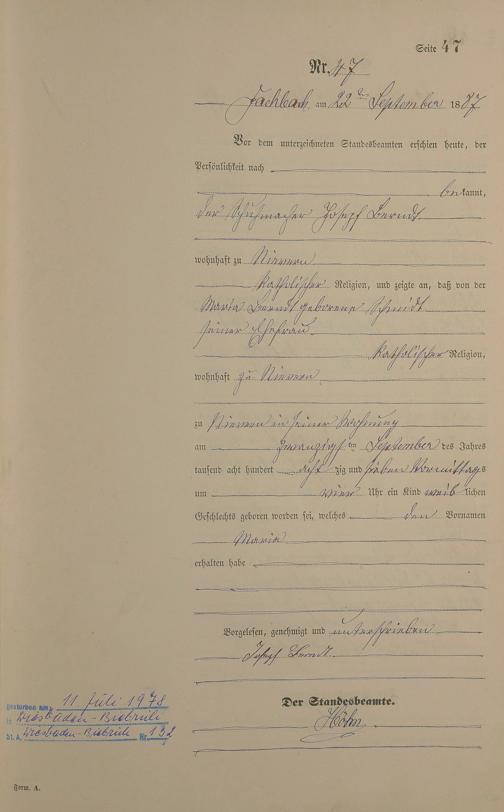 Seite 47
Nr. 47
Fachbach am 22ten September 1887
Vor dem unterzeichneten Standesbeamten erschien heute, der
Persönlichkeit nach
bekannt,
der Schuhmacher Josef Berndt
wohnhaft zu Nievern
katholischer Religion, und zeigte an, daß von der
Maria Berndt geborene Schmidt
seiner Ehefrau
katholischer Religion,
wohnhaft zu Nievern
zu Nievern in seiner Wohnung
am zwanzigsten September des Jahres
tausend acht hundert achtzig und sieben Vormittags
um vier Uhr ein Kind weiblichen
Geschlechts geboren worden sei, welches den Vornamen
Maria
erhalten habe
Vorgelesen, genehmigt und unterschrieben
Joseph Berndt
Der Standesbeamte.
Höhn
Gestorben am 11 Juli 1978
in Wiesbaden-Biebrich
St. A. Wiesbaden-Biebrich Nr. 132
Form. A.